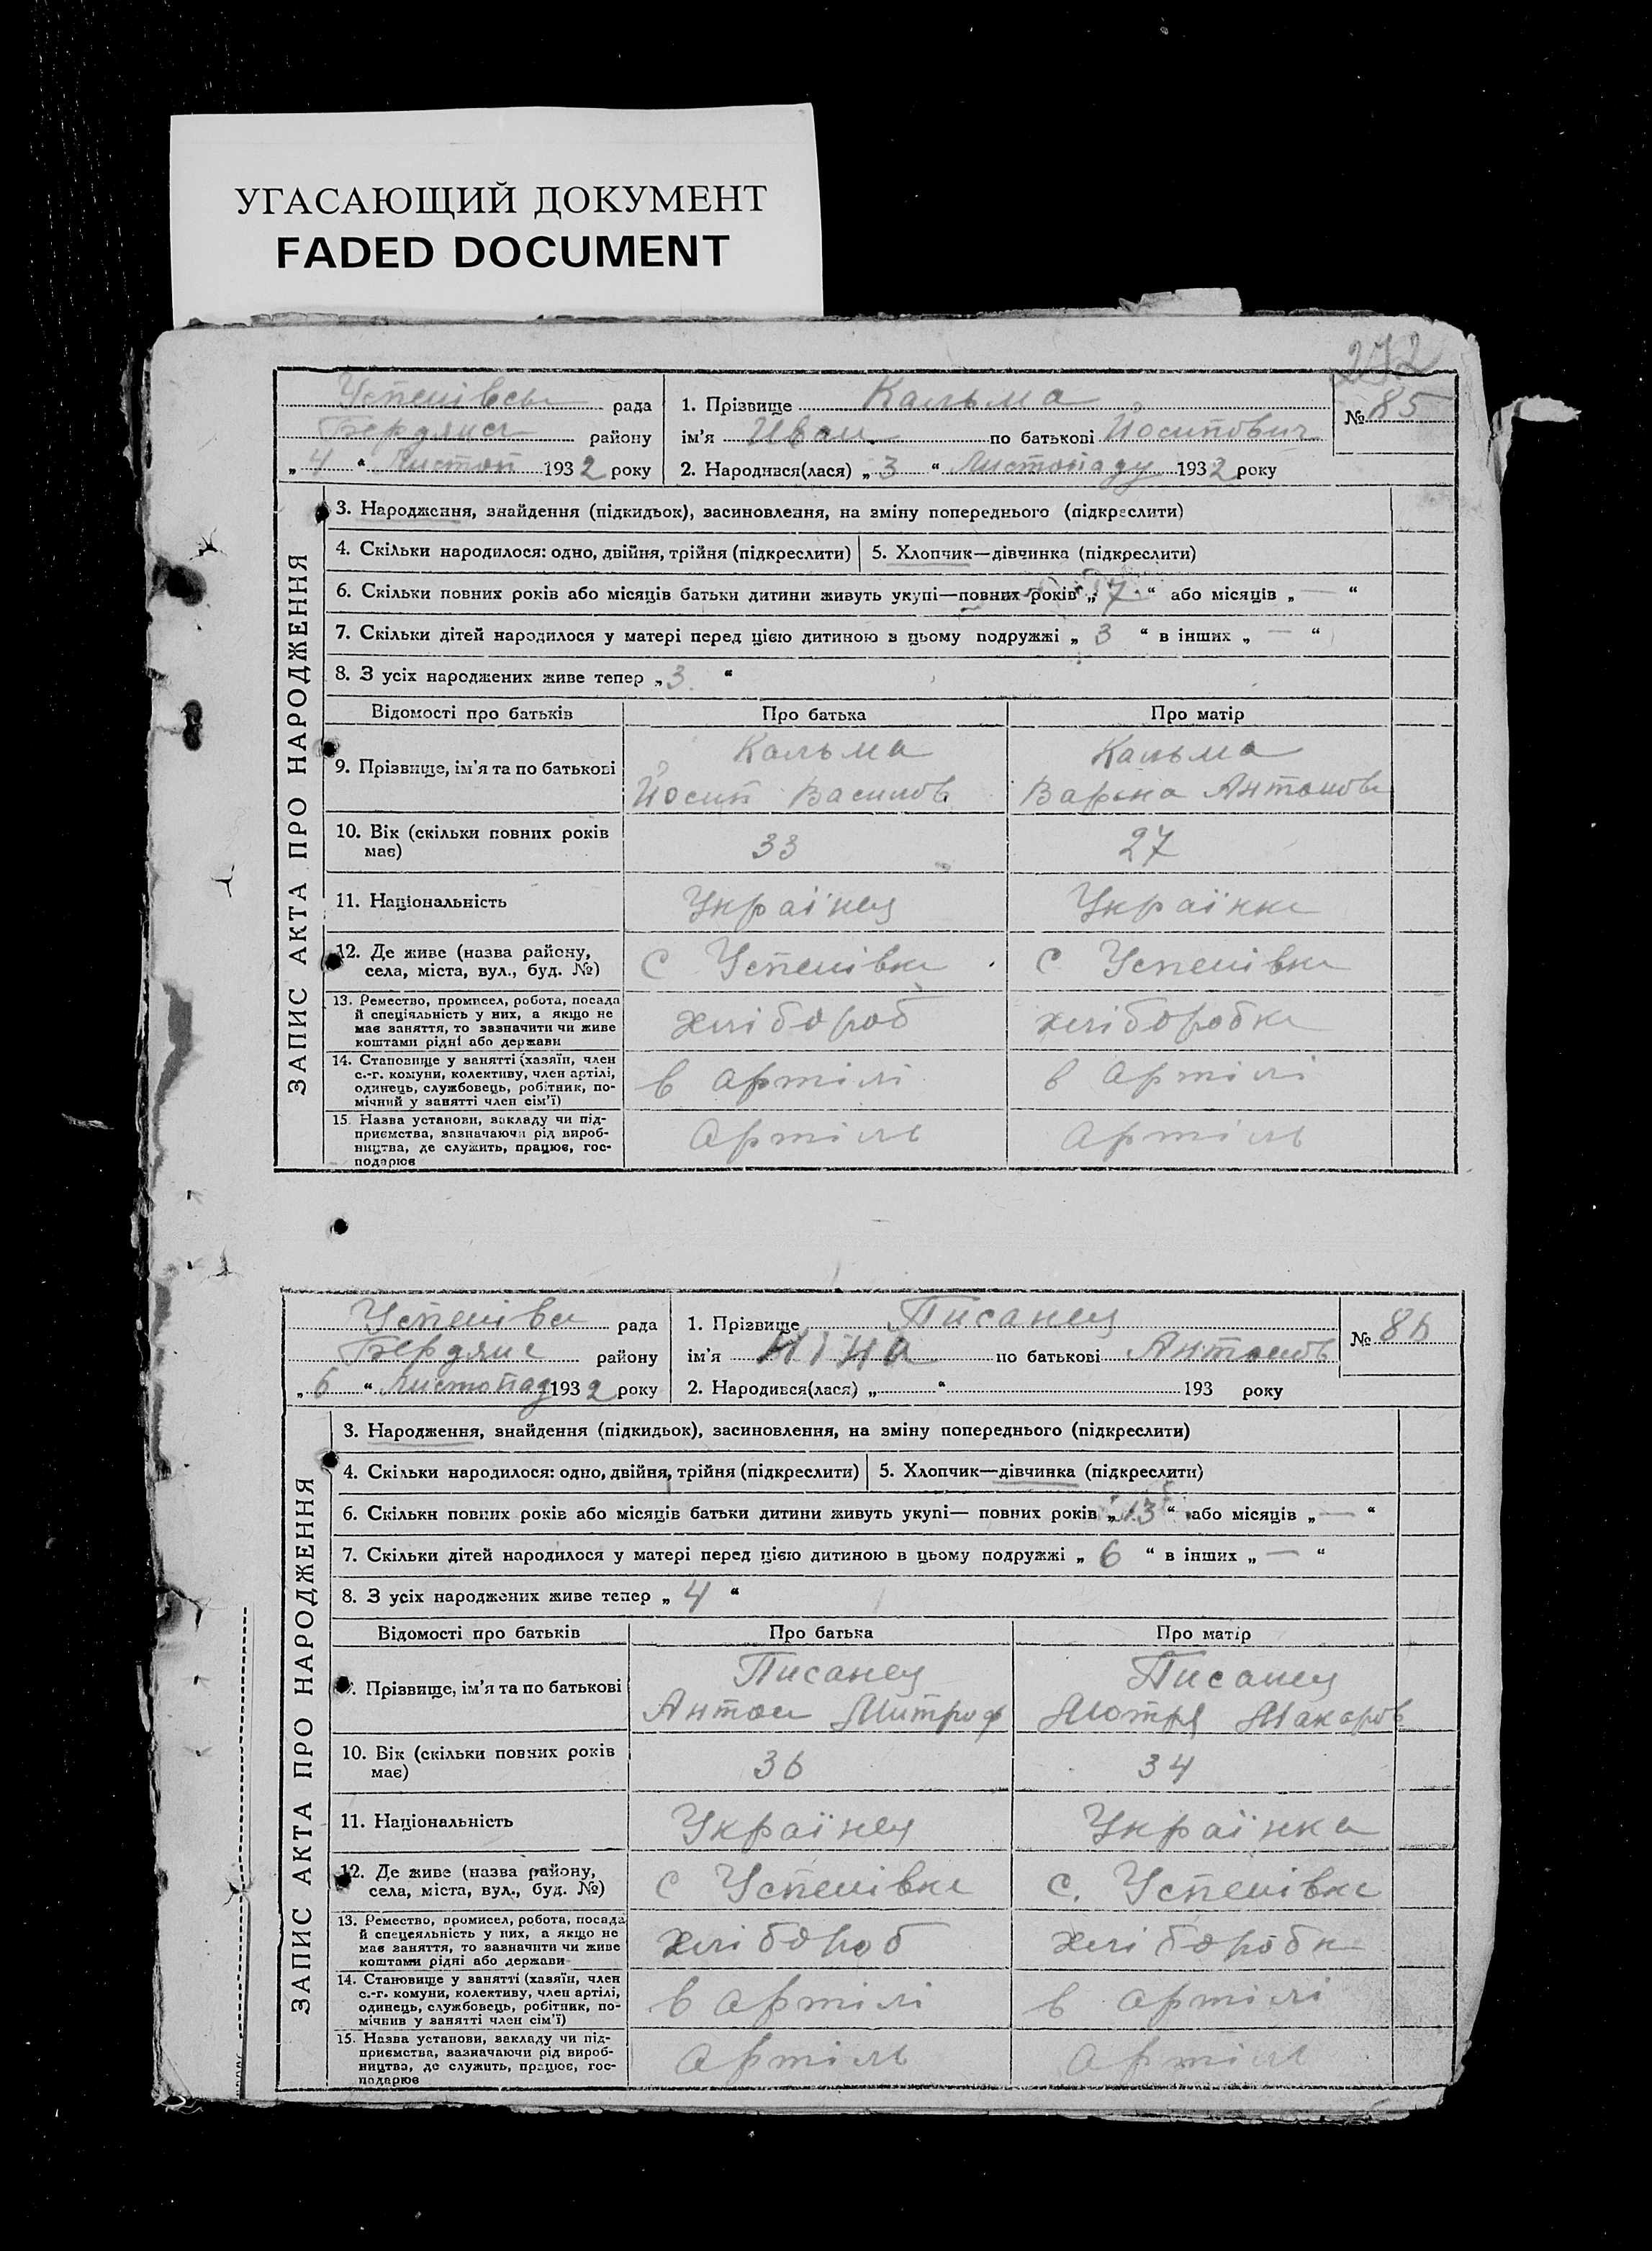 УГАСАЮЩИЙ ДОКУМЕНТ
FADED DOCUMENT
272
Успенівськ рада
Бердянск району
„ 4 “ Листоп 1932 року
1. Прізвище Кальма
ім'я Иван по батькові Йосипович
2. Народився(лася) „ 3 “ Листопаду 1932 року
№ 85
ЗАПИС АКТА ПРО НАРОДЖЕННЯ
3. Народження, знайдення (підкидьок), засиновлення, на зміну попереднього (підкреслити)
4. Скільки народилося: одно, двійня, трійня (підкреслити) 5. Хлопчик—дівчинка (підкреслити)
6. Скільки повних років або місяців батьки дитини живуть укупі—повних років „ 7 “ або місяців „ — “
7. Скільки дітей народилося у матері перед цією дитиною в цьому подружжі „ 3 “ в інших „ — “
8. З усіх народжених живе тепер „ 3 “
Відомості про батьків Про батька Про матір
9. Прізвище, ім'я та по батькові
Кальма
Йосип Василов
Кальма
Варька Антонов
10. Вік (скільки повних років
має)
33 27
11. Національність Українец Українка
12. Де живе (назва району,
села, міста, вул., буд. №)
с Успенівка с Успенівка
13. Ремество, промисел, робота, посада
й спеціяльність у них, а якщо не
має заняття, то зазначити чи живе
коштами рідні або держави
хлібороб хліборобка
14. Становище у занятті (хазяїн, член
с.-г. комуни, колективу, член артілі,
одинець, службовець, робітник, по-
мічний у занятті член сім'ї)
в артілі в артілі
15. Назва установи, закладу чи під-
приємства, зазначаючи рід вироб-
ництва, де служить, працює, гос-
подарює
Артіль Артіль
Успенівск рада
Бердянс району
„ 6 “ Листопад 1932 року
1. Прізвище Писанец
ім'я Ніна по батькові Антонов
2. Народився(лася) „ “ 193 року
№ 86
ЗАПИС АКТА ПРО НАРОДЖЕННЯ
3. Народження, знайдення (підкидьок), засиновлення, на зміну попереднього (підкреслити)
4. Скільки народилося: одно, двійня, трійня (підкреслити) 5. Хлопчик—дівчинка (підкреслити)
6. Скільки повних років або місяців батьки дитини живуть укупі— повних років „ 13 “ або місяців „ — “
7. Скільки дітей народилося у матері перед цією дитиною в цьому подружжі „ 6 “ в інших „ — “
8. З усіх народжених живе тепер „ 4 “
Відомості про батьків Про батька Про матір
Прізвище, ім'я та по батькові
Писанец
Антон Митроф
Писанец
Мотря Макаров
10. Вік (скільки повних років
має)
36 34
11. Національність Українец Українка
12. Де живе (назва району,
села, міста, вул., буд. №)
с Успенівка с. Успенівка
13. Ремество, промисел, робота, посада
й спецеяльність у них, а якщо не
має заняття, то зазначити чи живе
коштами рідні або держави
хлібороб хліборобк
14. Становище у занятті (хазяїн, член
с.-г. комуни, колективу, член артілі,
одинець, службовець, робітник, по-
мічнив у занятті член сім'ї)
в артілі в артілі
15. Назва установи, закладу чи під-
приємства, зазначаючи рід вироб-
ництва, де служить, працює, гос-
подарює
Артіль Артіль